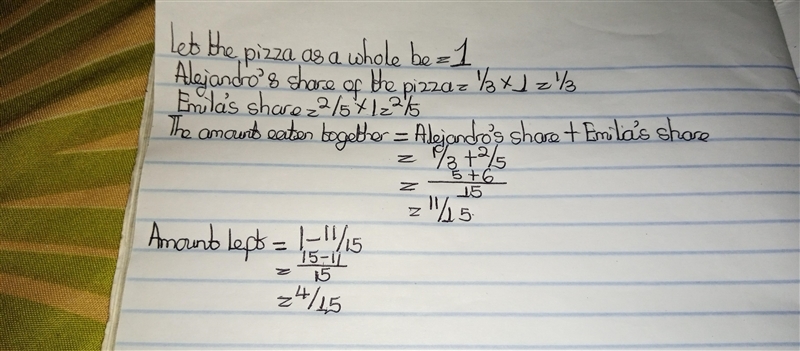 Let the pizza as a whole be = 1
Alejandro's share of the pizza = 1/3 × 1 = 1/3
Emila's share = 2/5 × 1 = 2/5
The amount eaten together = Alejandro's share + Emila's share
= 1/3 + 2/5
= 5+6/15
= 11/15.
Amount Left = 1 - 11/15
= 15-11/15
= 4/15